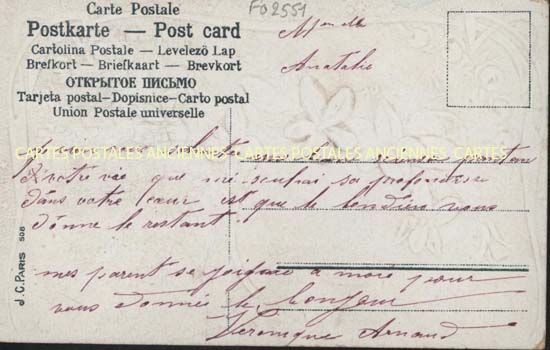 Carte Postale
Postkarte — Post card
Cartolina Postale — Levelező Lap
Brefkort — Briefkaart — Brevkort
ОТКРЫТОЕ ПИСЬМО
Tarjeta postal–Dopisnice–Carto postal
Union Postale universelle
F02551
Melle
Anatalie
CARTES POSTALES ANCIENNES CARTES
je vous
votre vie que
dans votre cœur est que le bondieu vous
donne le restant
mes parent se joigne a moie pour
vous donnée le bonjour
Veronique Arnaud
J.C. PARIS 508